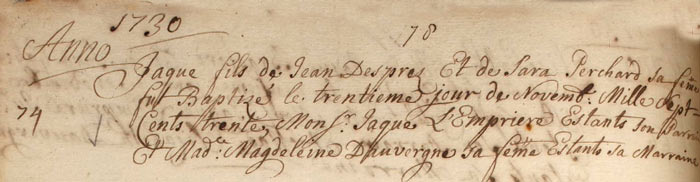 1730
78
Anno
Jaque fils de Jean Desprez Et de Sara Perchard sa feme
fut Baptizé le trentieme jour de Novembr: Mille Sept
74
Cents trente, Monsr. Jaque L'Empriere Estants son Parrain
Et Made: Magdeleine Dauvergne sa feme Estants sa Marraine